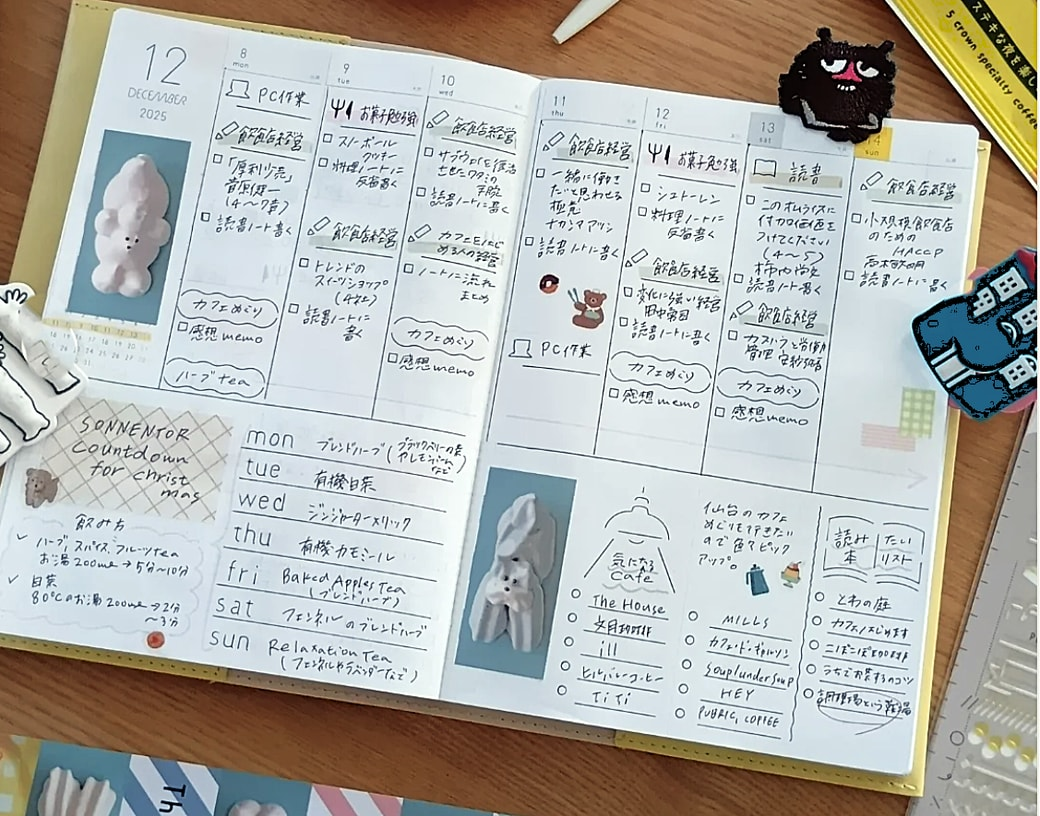 12
DECEMBER
2025
8
mon
PC作業
飲食店経営
「厚利少売」
菅原健一
(4〜7章)
読書ノート書く
カフェめぐり
感想memo
ハーブtea
9
tue
お菓子勉強
スノーボール
クッキー
料理ノートに
反省書く
飲食店経営
トレンドの
スイーツショップ
読書ノートに
書く
10
wed
飲食店経営
サブウェイを復活
させたワタミの
手腕
読書ノートに書く
カフェをはじ
める人の経営
ノートに流れ
まとめ
カフェめぐり
感想memo
11
thu
飲食店経営
一緒に働き
たいと思わせる
極意
ナカシマアツシ
読書ノートに書く
PC作業
12
fri
お菓子勉強
シュトーレン
料理ノートに
反省書く
飲食店経営
変化に強い経営
読書ノートに書く
カフェめぐり
感想memo
13
sat
読書
このオムライスに
付加価値を
つけてください
(4〜5)
柿内尚文
読書ノート書く
飲食店経営
カフェめぐり
感想memo
sun
飲食店経営
小規模飲食店
のための
HACCP
読書ノートに書く
SONNENTOR
Countdown
for christ
mas
飲み方
ハーブ,スパイス,フルーツtea
お湯200ml→5分〜10分
日茶
80℃のお湯200ml→2分
〜3分
mon ブレンドハーブ
tue 有機日茶
wed ジンジャーターメリック
thu 有機カモミール
fri Baked Apples Tea
(ブレンドハーブ)
sat フェンネルのブレンドハーブ
sun Relaxation Tea
(フェンネルやラベンダーなど)
気になる
Cafe
The House
ill
ヒルバレーコーヒー
TiTi
仙台のカフェ
めぐりを行きたい
ので色々ピック
アップ。
MILLS
カフェ・ド・ギャルソン
Souplundersoup
HEY
PUBRIC, COFFEE
読み たい
本 リスト
とわの庭
カフェはじめます
うちでお茶するのコツ
ステキな夜を楽し
5 crown specialty coffee
Th